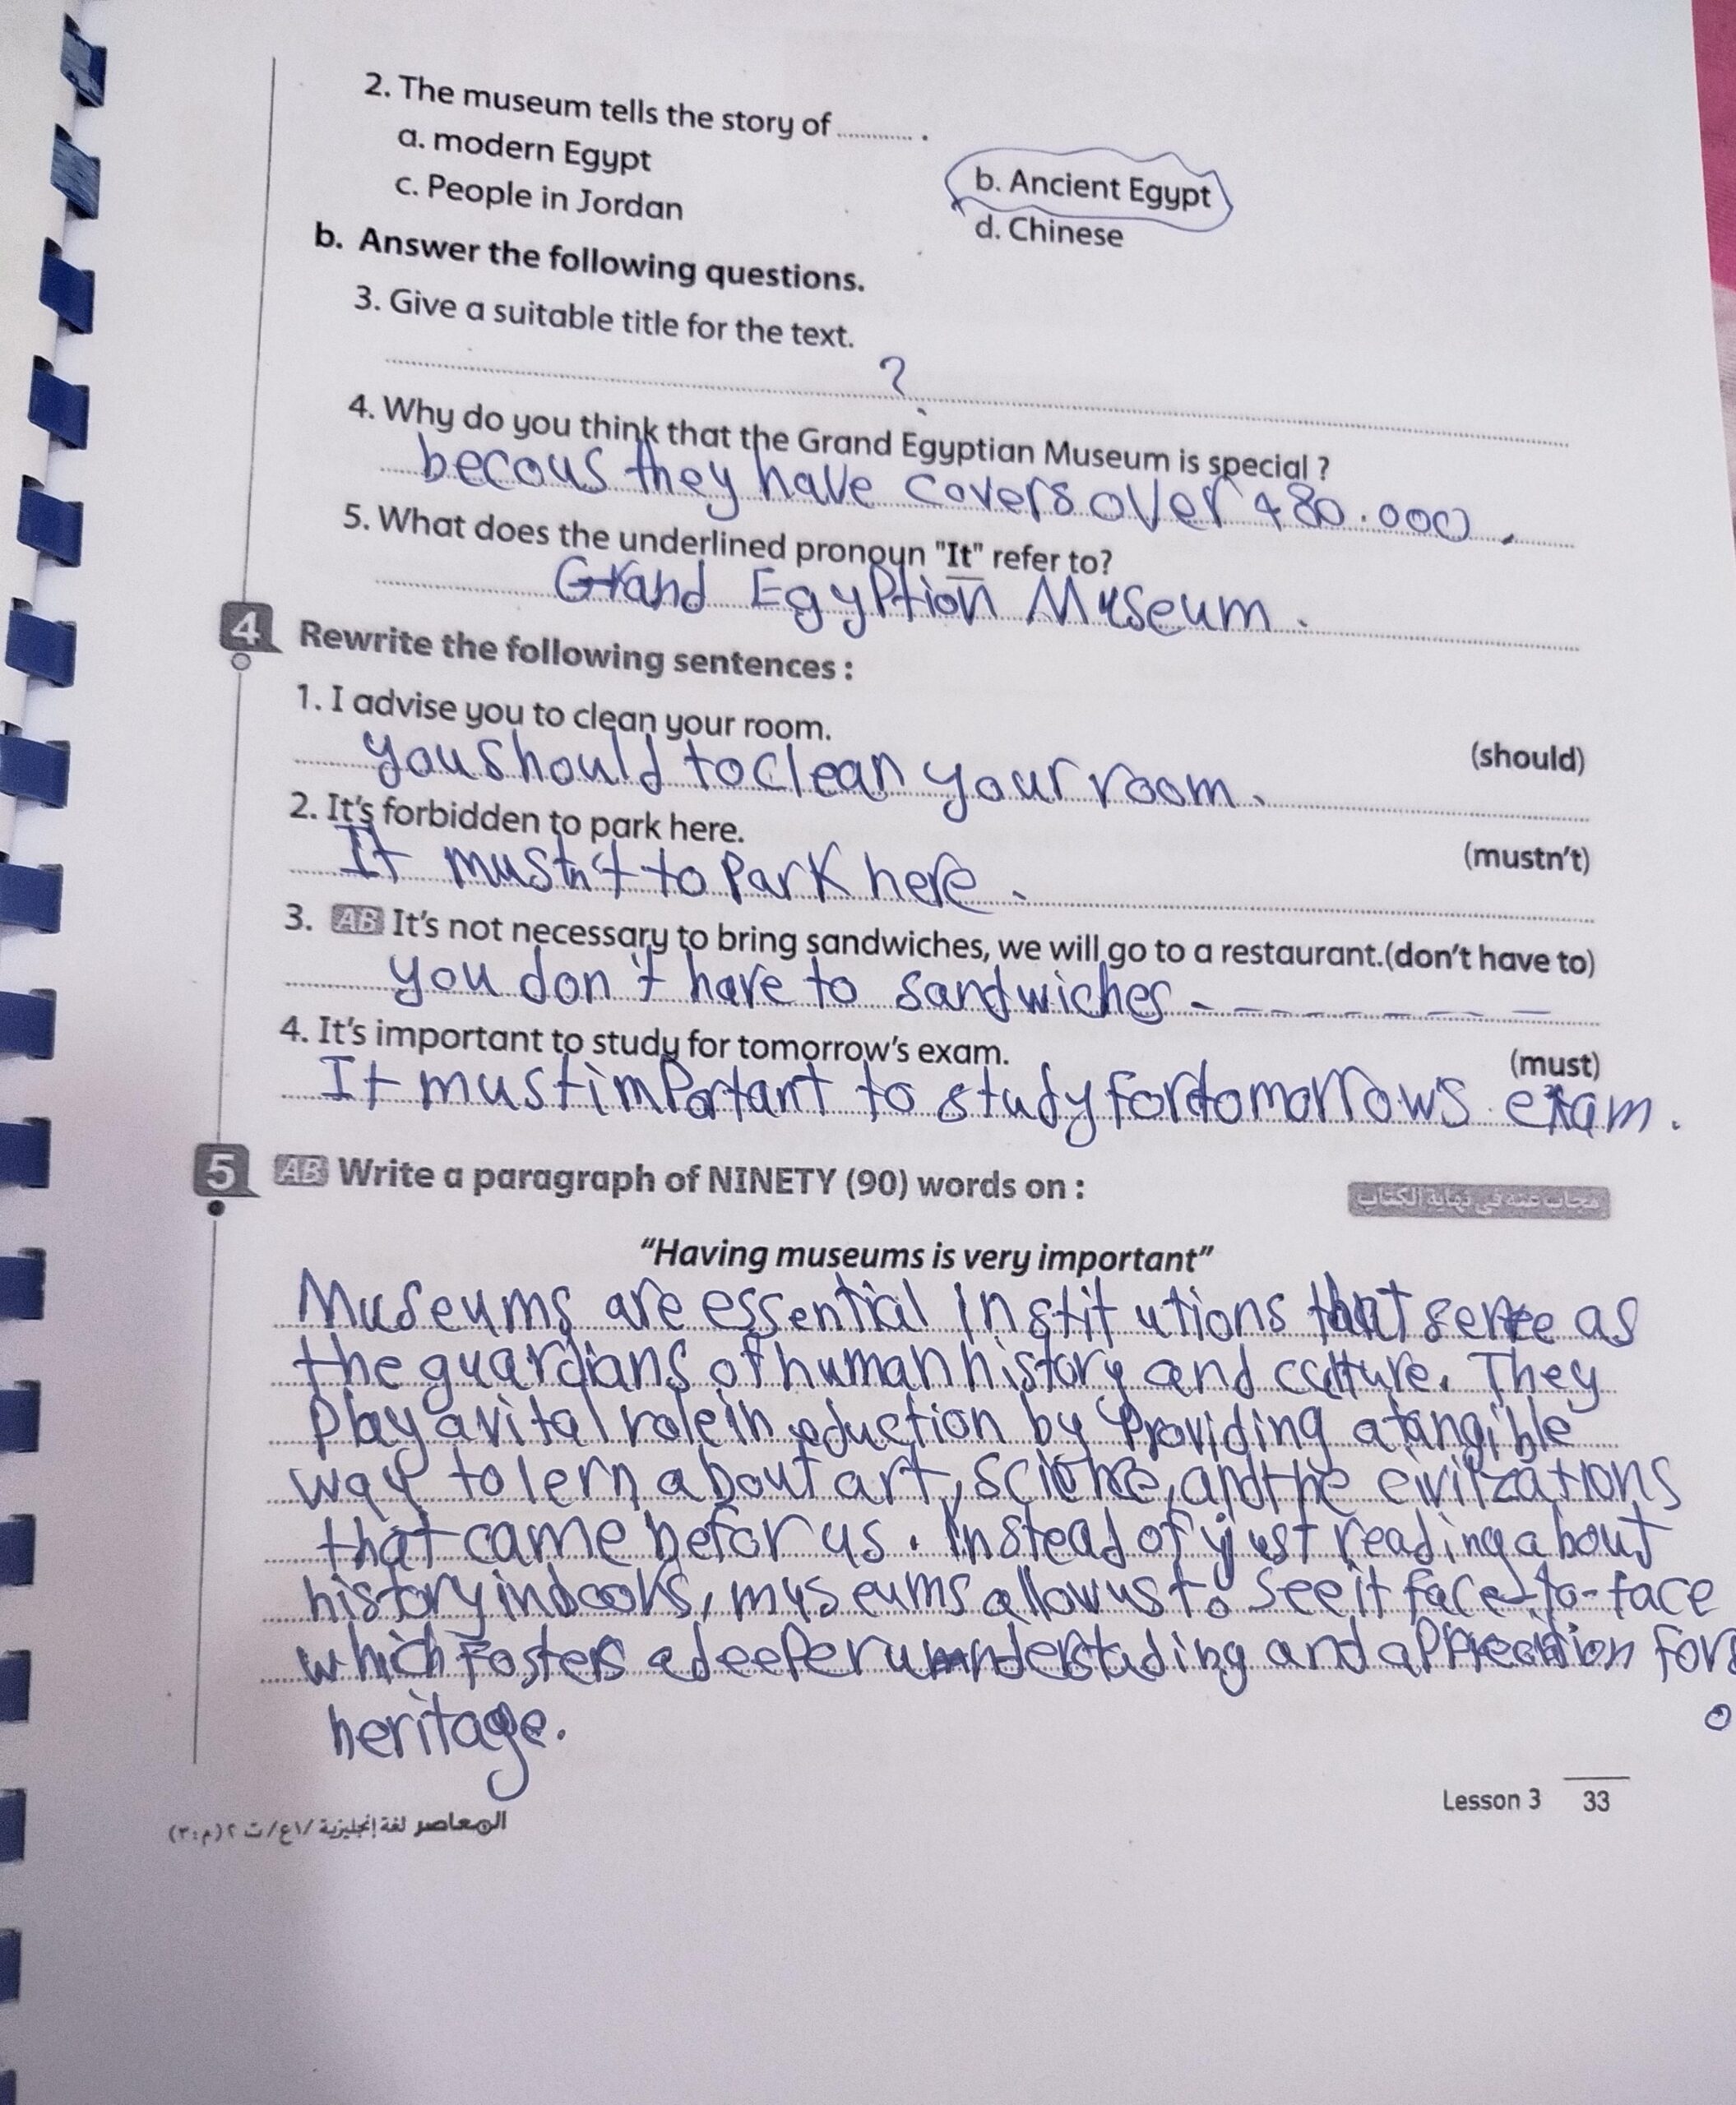 2. The museum tells the story of ............ .
a. modern Egypt
b. Ancient Egypt
c. People in Jordan
d. Chinese
b. Answer the following questions.
3. Give a suitable title for the text.
?
4. Why do you think that the Grand Egyptian Museum is special ?
becous they have covers over 480.000 .
5. What does the underlined pronoun "It" refer to?
Grand Egyption Museum .
4 Rewrite the following sentences :
1. I advise you to clean your room. (should)
you should to clean your room .
2. It's forbidden to park here. (mustn't)
It mustn't to Park here .
3. AB It's not necessary to bring sandwiches, we will go to a restaurant.(don't have to)
you don't have to sandwiches - - - - - - - -
4. It's important to study for tomorrow's exam. (must)
It must important to study for tomorrow's exam .
5 AB Write a paragraph of NINETY (90) words on :
مجاب عنه فى نهاية الكتاب
"Having museums is very important"
Museums are essential institutions that serve as
the guardians of human history and culture. They
Play a vital role in eduction by Providing a tangible
way to lern about art, science, and the civilzations
that came befor us . Instead of just reading about
history in books, museums allow us to see it face-to-face
which Fosters a deeper and for
heritage.
Lesson 3 33
المعاصر لغة إنجليزية /١ع/ ت ٢ (م:٣)